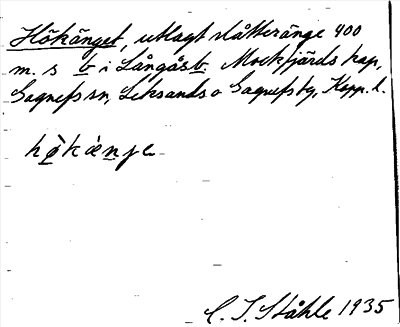 Hökänget, utlagt slåtteränge 400
m. s b i Långåsb. Mockfjärds kap,
Gagnefs sn, Leksands o Gagnefs tg, Kopp. l.
hö̀kæ̀nje
C. I. Ståhle 1935